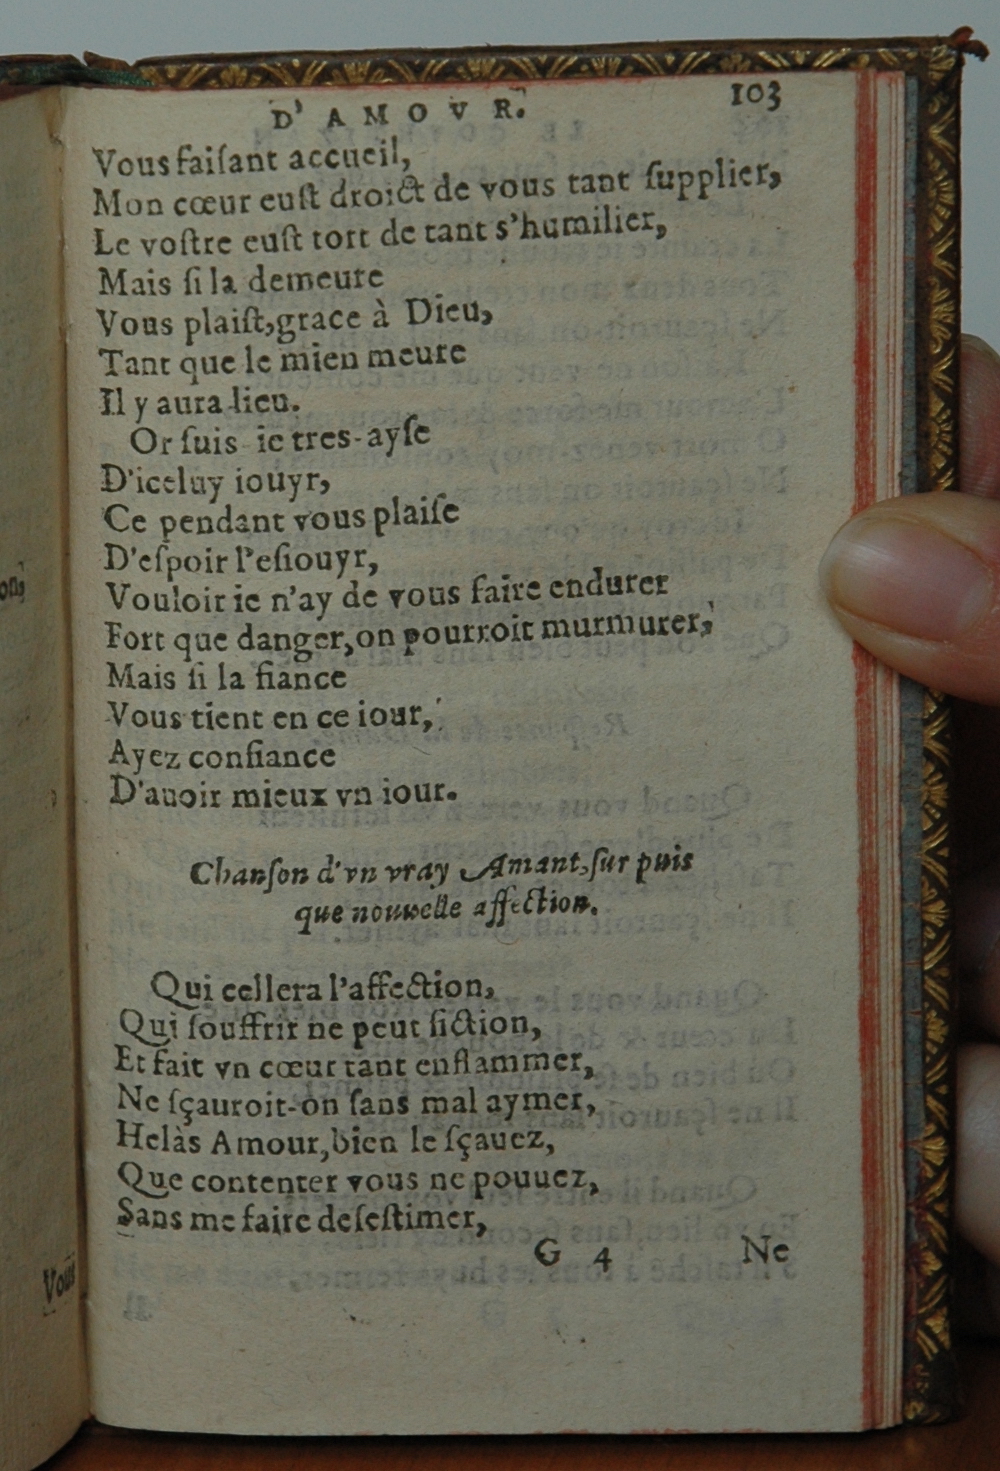 D' AMOVR. 103
Vous faiſant accueil,
Mon cœur euſt droict de vous tant ſupplier,
Le voſtre euſt tort de tant s'humilier,
Mais ſi la demeure
Vous plaiſt, grace à Dieu,
Tant que le mien meure
Il y aura lieu.
Or ſuis ie tres-ayſe
D'iceluy iouyr,
Ce pendant vous plaiſe
D'eſpoir l'eſiouyr,
Vouloir ie n'ay de vous faire endurer
Fort que danger, on pourroit murmurer,
Mais ſi la fiance
Vous tient en ce iour,
Ayez confiance
D'auoir mieux vn iour.
Chanſon d'vn vray Amant, ſur puis
que nouuelle affection.
Qui cellera l'affection,
Qui ſouffrir ne peut fiction,
Et fait vn cœur tant enflammer,
Ne ſçauroit-on ſans mal aymer,
Helàs Amour, bien le ſçauez,
Que contenter vous ne pouuez,
Sans me faire deſeſtimer,
G 4 Ne
Vous